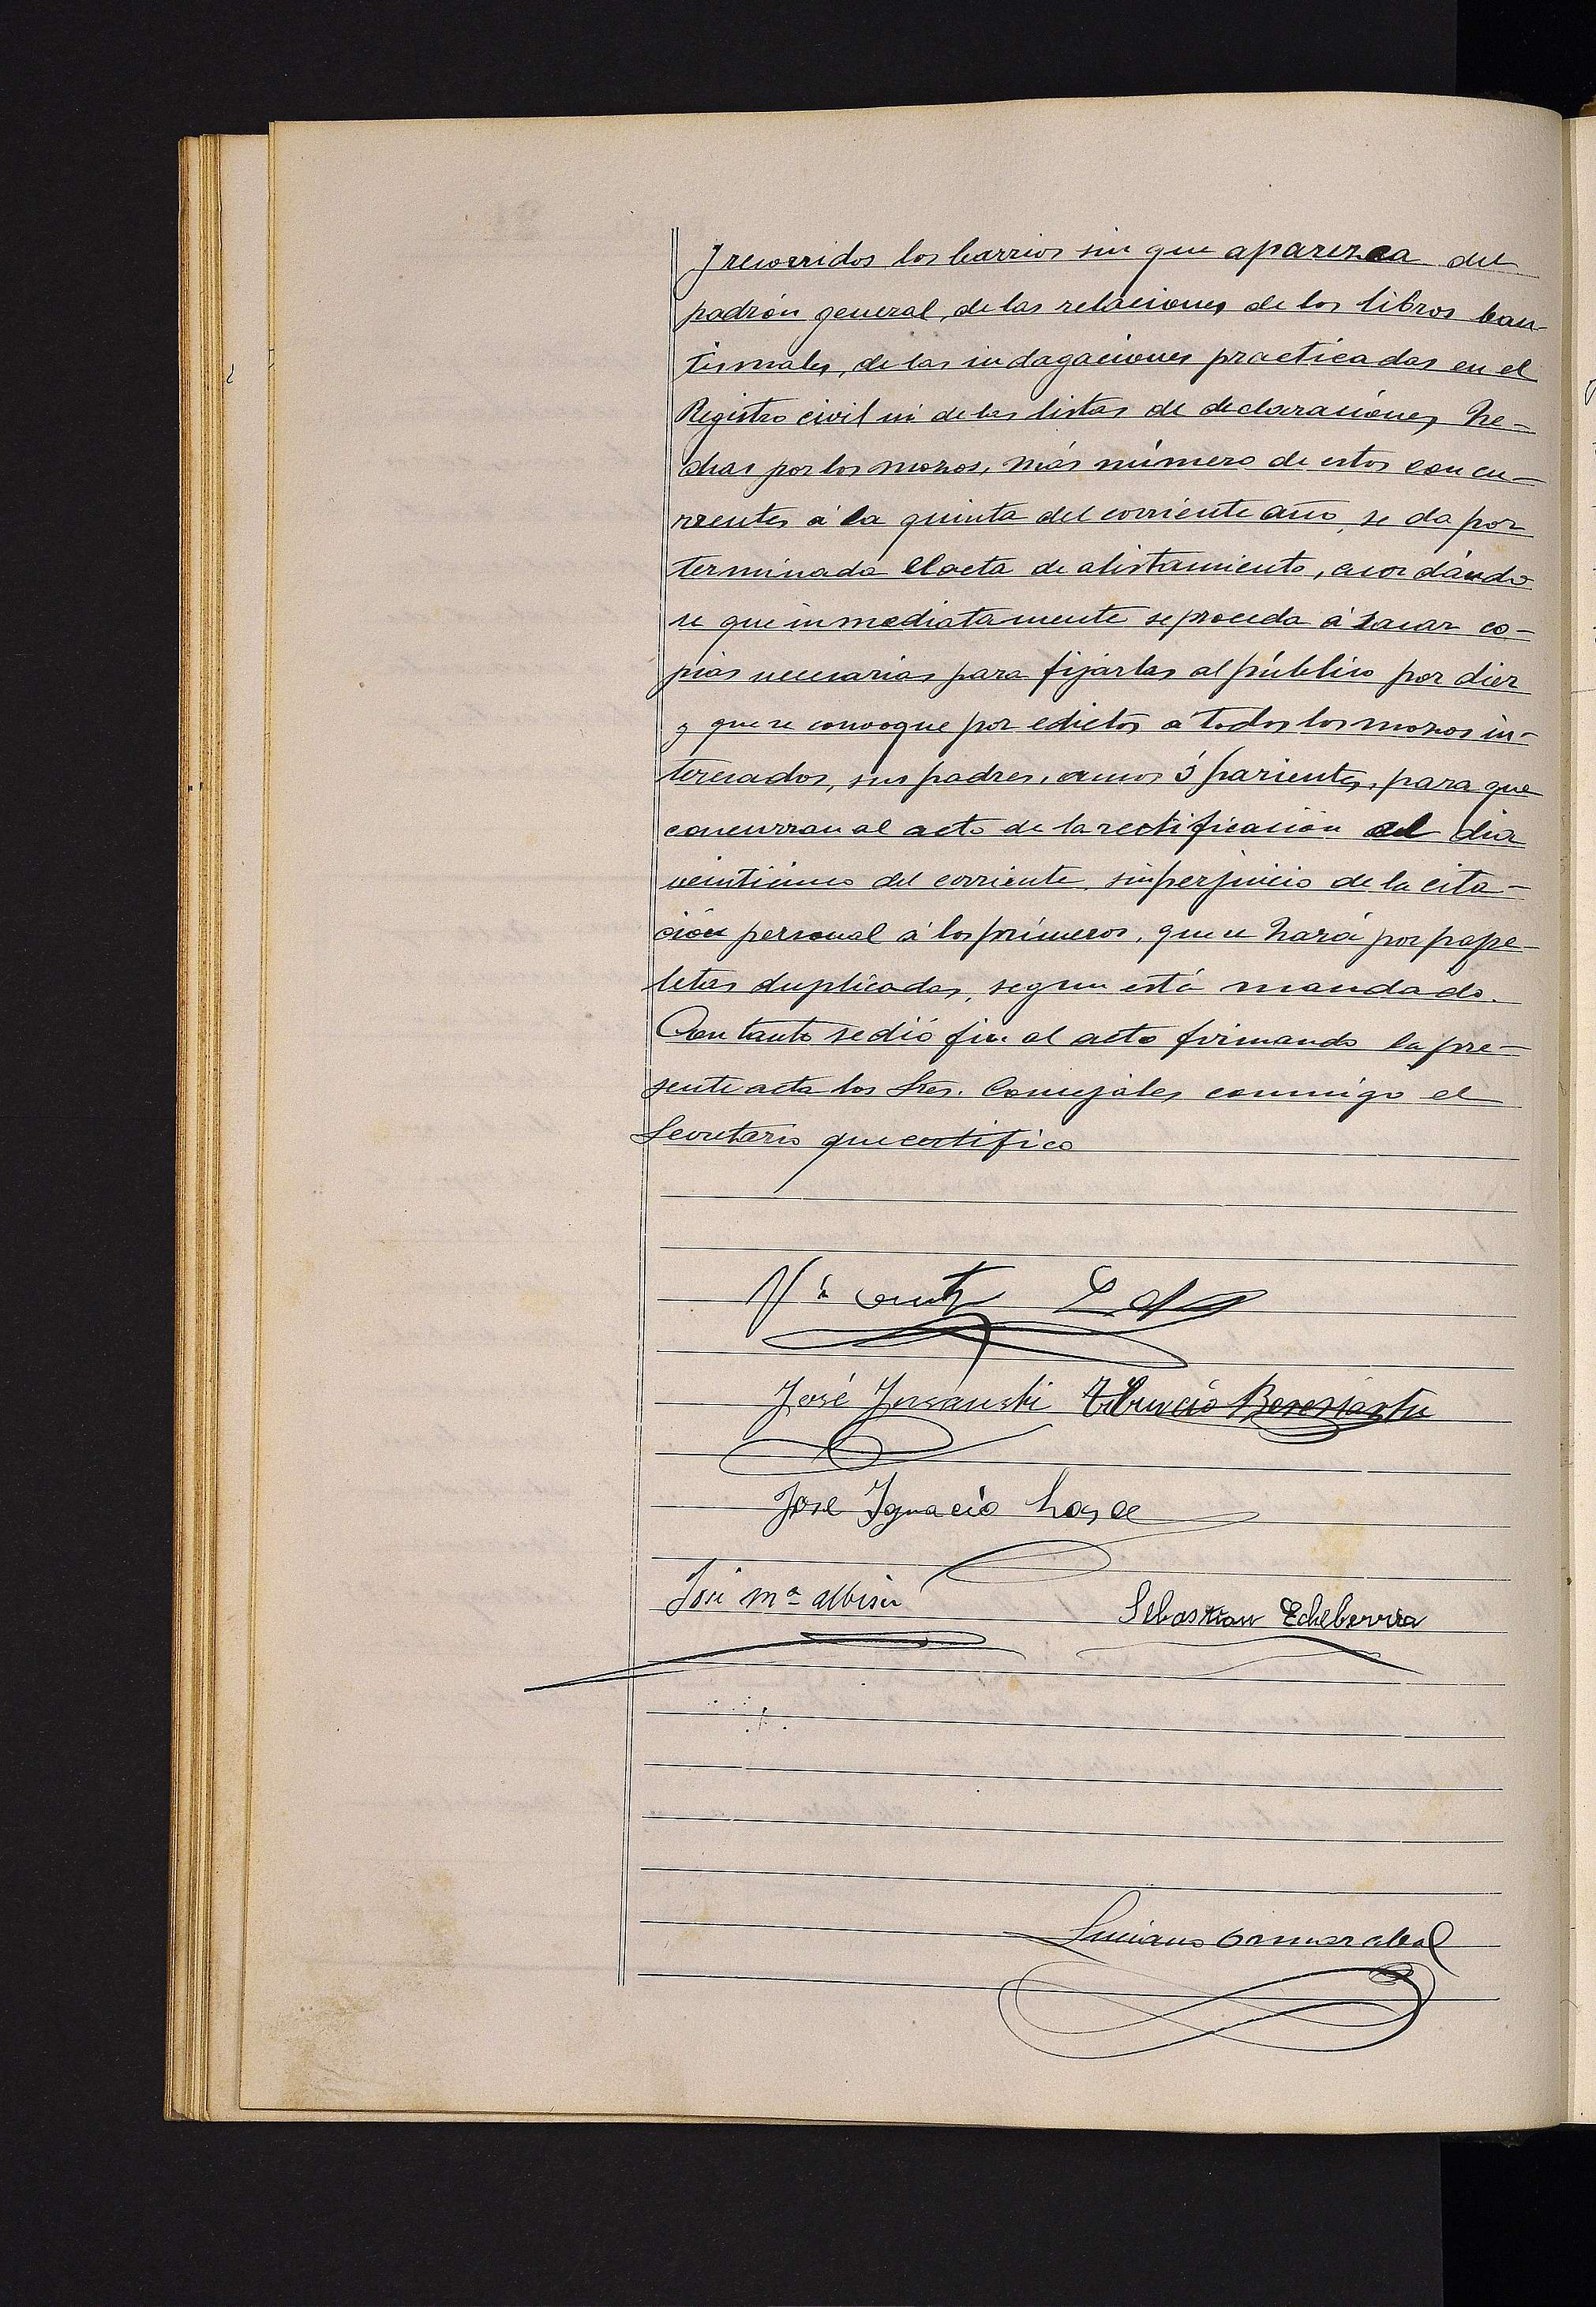 Y recorridos los barrios sin que aparezca del
padrón general, de las relaciones de los libros bau-
tismales, de las indagaciones practicadas en el
Registro civil ni de las listas de declaraciones he-
chas por los mozos, más número de estos concu-
rrentes á la quinta del corriente año, se da por
terminada el acta de alistamiento, acordándo
se que inmediatamente se proceda á sacar co-
pias necesarias para fijarlas al público por diez
y que se convoque por edictos á todos los mozos in-
teresados, sus padres, amos ó parientes, para que
concurran al acto de la rectificación el dia
veinticinco del corriente, sin perjuicio de la cita-
ción personal á los primeros, que se hará por pape-
letas duplicadas, segun está mandado.
Con tanto se dió fin al acto firmando la pre-
sente acta los Sres. Concejales conmigo el
Secretario que certifico
Vicente
José Jnsausti Tiburcio Beresiartu
José Ignacio
José Mª Albisu
Sebastian Echeberria
Luciano Ormazabal